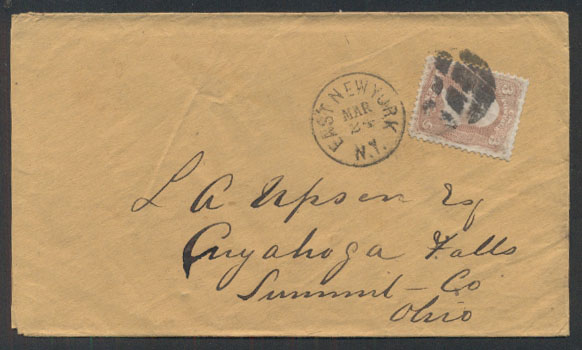 EAST NEW YORK N.Y.
MAR
24
L A Upson Esq
Cuyahoga Falls
Summit - Co
Ohio